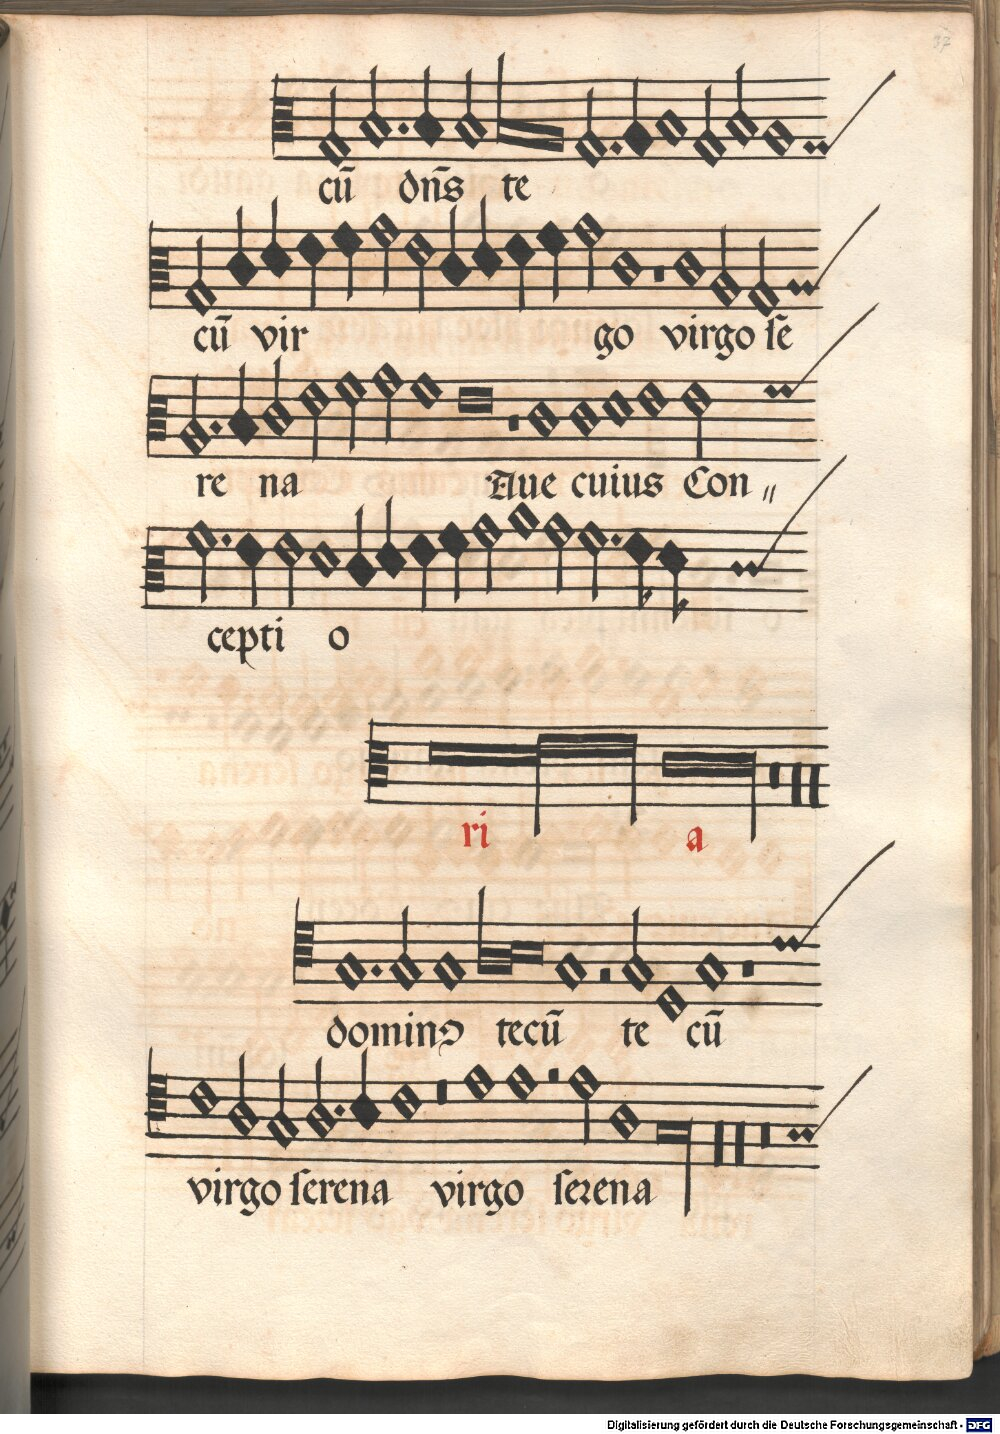 37
cū dn̄s te
cū vir go virgo se
re na Aue cuius Con〃
cepti o
ri a
dominꝰ tecū te cū
virgo serena virgo serena
Digitalisierung gefördert durch die Deutsche Forschungsgemeinschaft - DFG